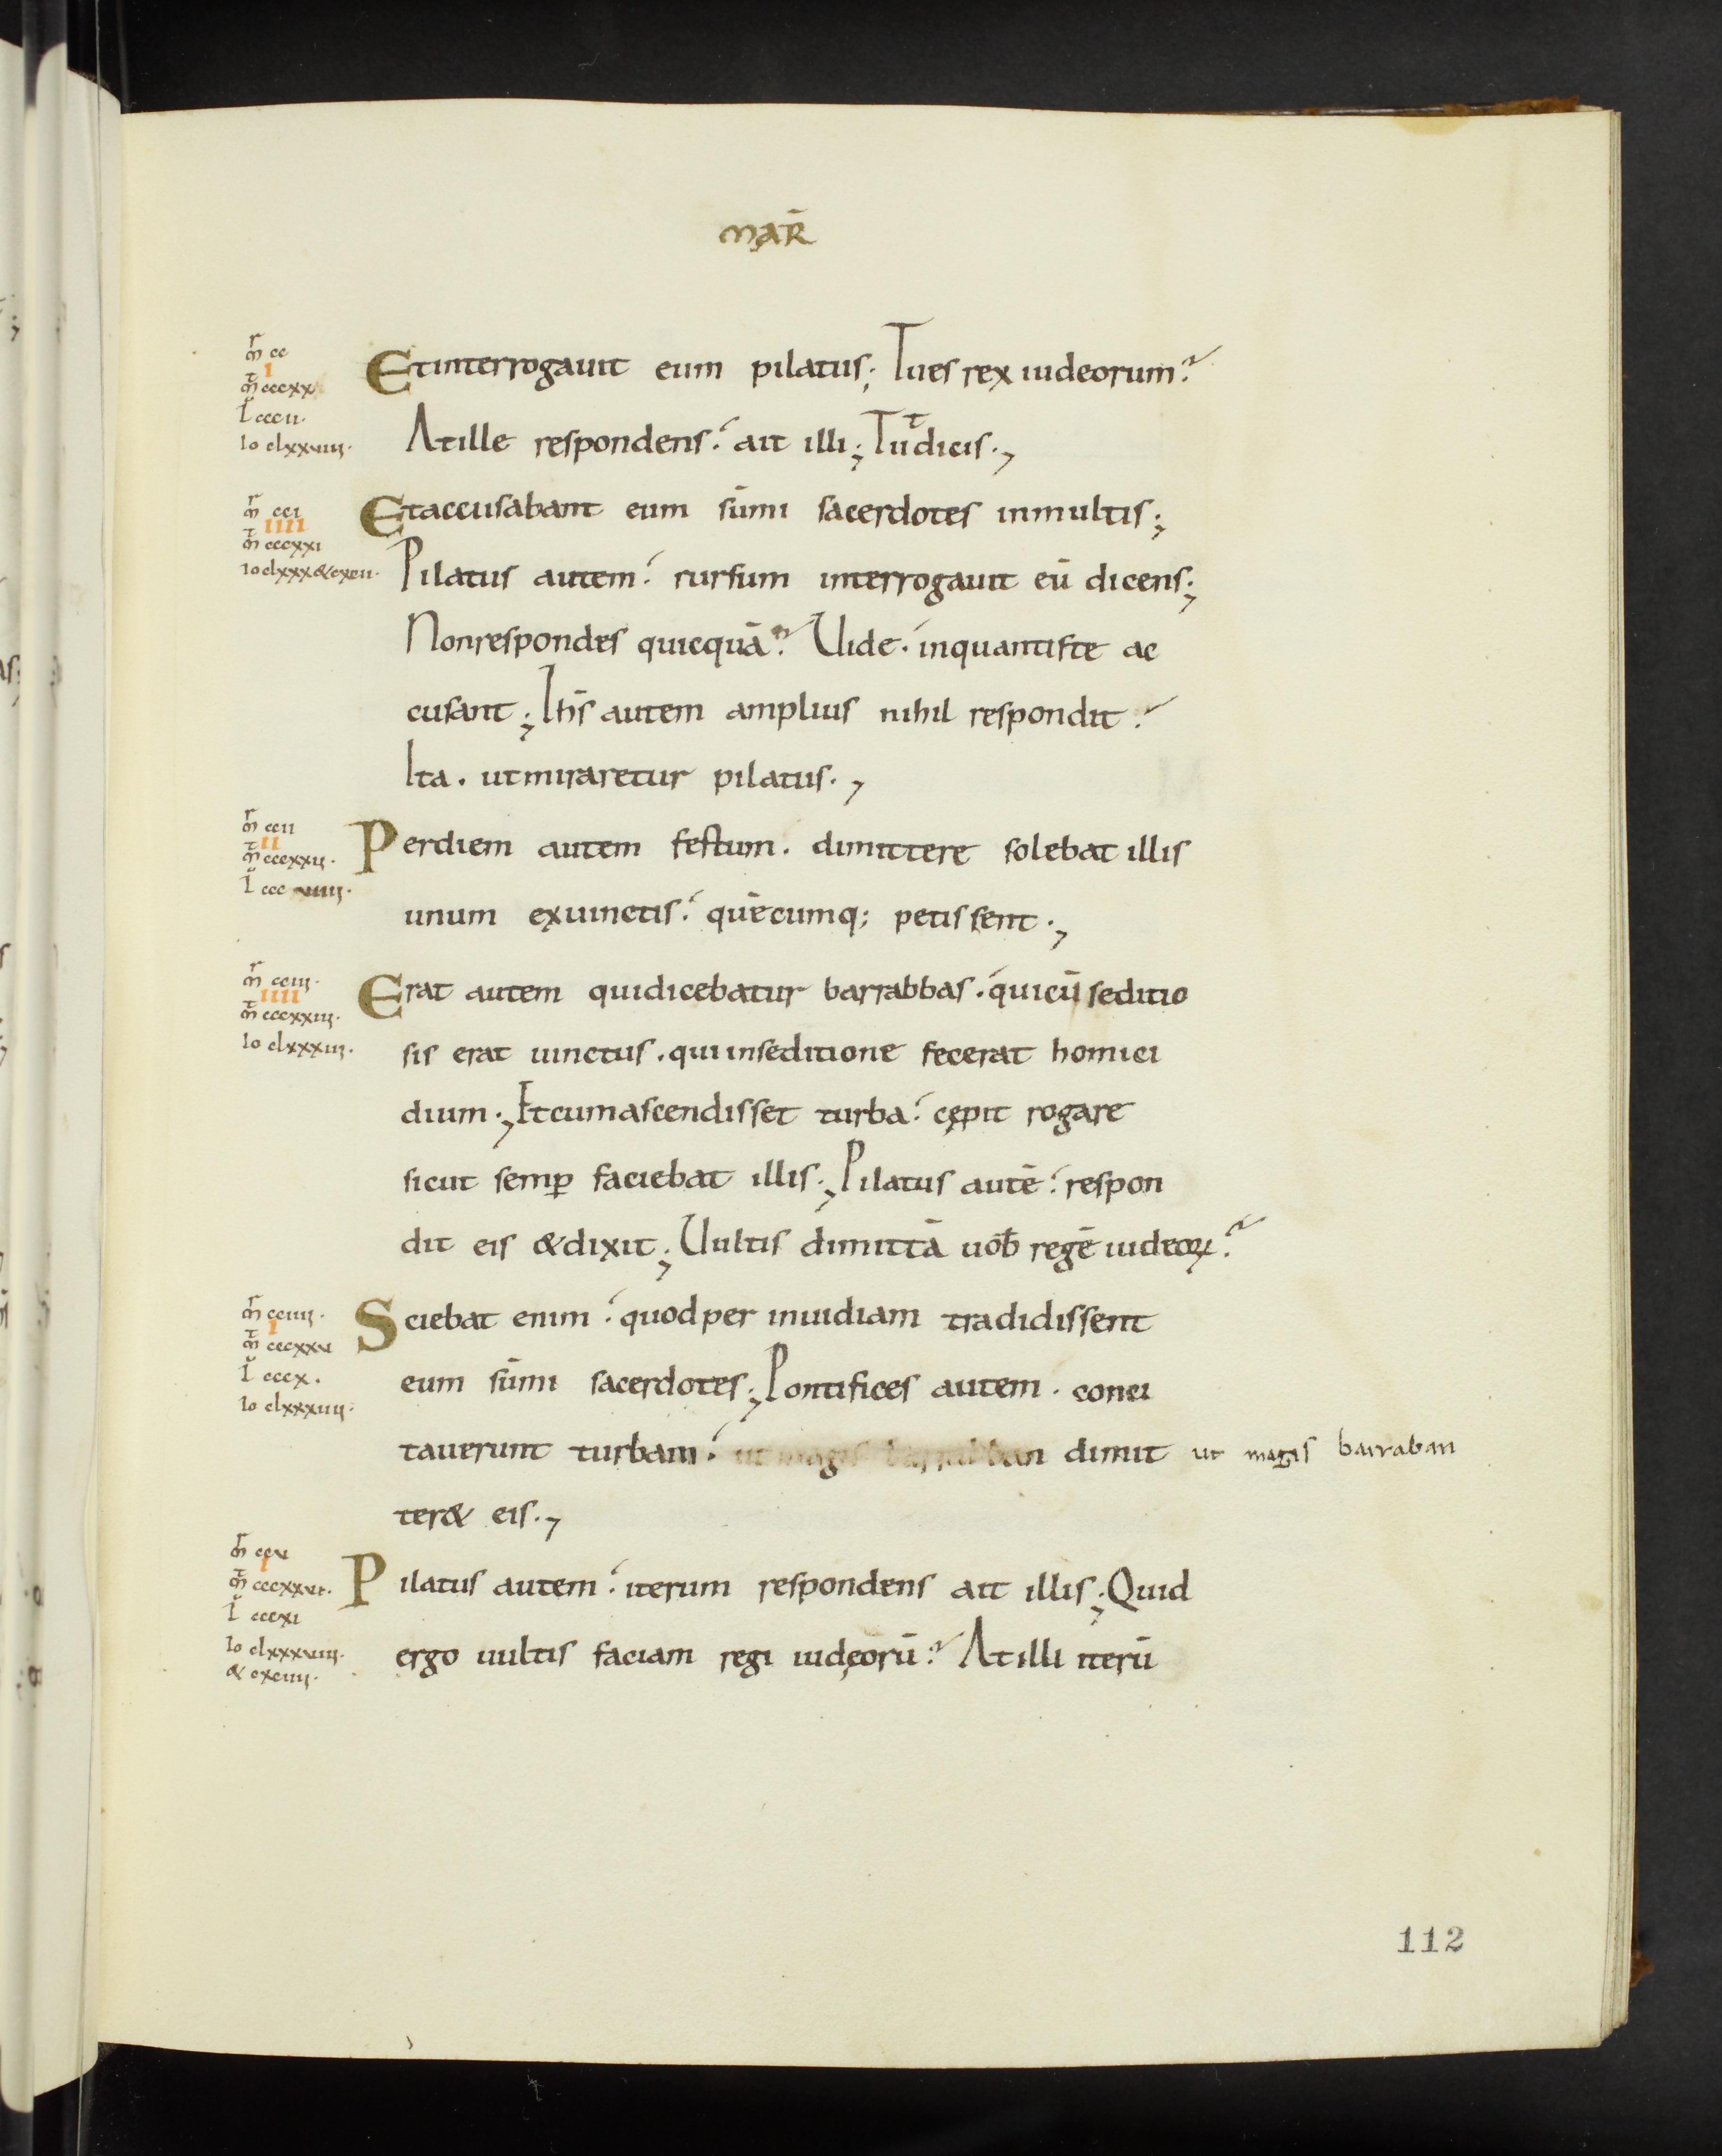 MAR̄
m̄r cc
i
m̄t cccxx
l̄ cccii·
Io clxxviiii·
Etinterrogauit eum pilatus; Tues rex iudeorum?
Atille respondens· ait illi; Tu dicis·,
m̄r cci
iiii
m̄t cccxxi
Io clxxx&cxcii·
Etaccusabant eum sūmi sacerdotes inmultis;
Pilatus autem· rursum interrogauit eū dicens;
Nonrespondes quicquā? Uide· inquantiste ac
cusant; Ih̄s autem amplius nihil respondit·
Ita· utmiraretur pilatus·,
m̄r ccii
ii
m̄t cccxxii·
l̄ ccc viiii·
Perdiem autem festum· dimittere solebat illis
unum exuinctis· quēcumq; petissent·,
m̄r cciii·
iiii
m̄t cccxxiiii·
Io clxxxiii·
Erat autem quidicebatur barrabbas· quicū seditio
sis erat uinctus· quiinseditione fecerat homici
dium·, Etcumascendisset turba· cępit rogare
sicut semp̄ faciebat illis·, Pilatus autē· respon
dit eis &dixit; Uultis dimittā uob̄ regē iudeoꝝ?
m̄r cciiii·
i
m̄t cccxxv
l̄ cccx·
Io clxxxiiii·
Sciebat enim· quodper inuidiam tradidissent
eum sūmi sacerdotes; Pontifices autem· conci
tauerunt turbam· ut magis barrabban dimit ut magis barraban
ter& eis·,
m̄r ccv
i
m̄t cccxxvi·
l̄ cccxi
Io clxxxviiii·
& cxciiii·
Pilatus autem· iterum respondens ait illis; Quid
ergo uultis faciam regi iudęorū? Atilli iterū
112